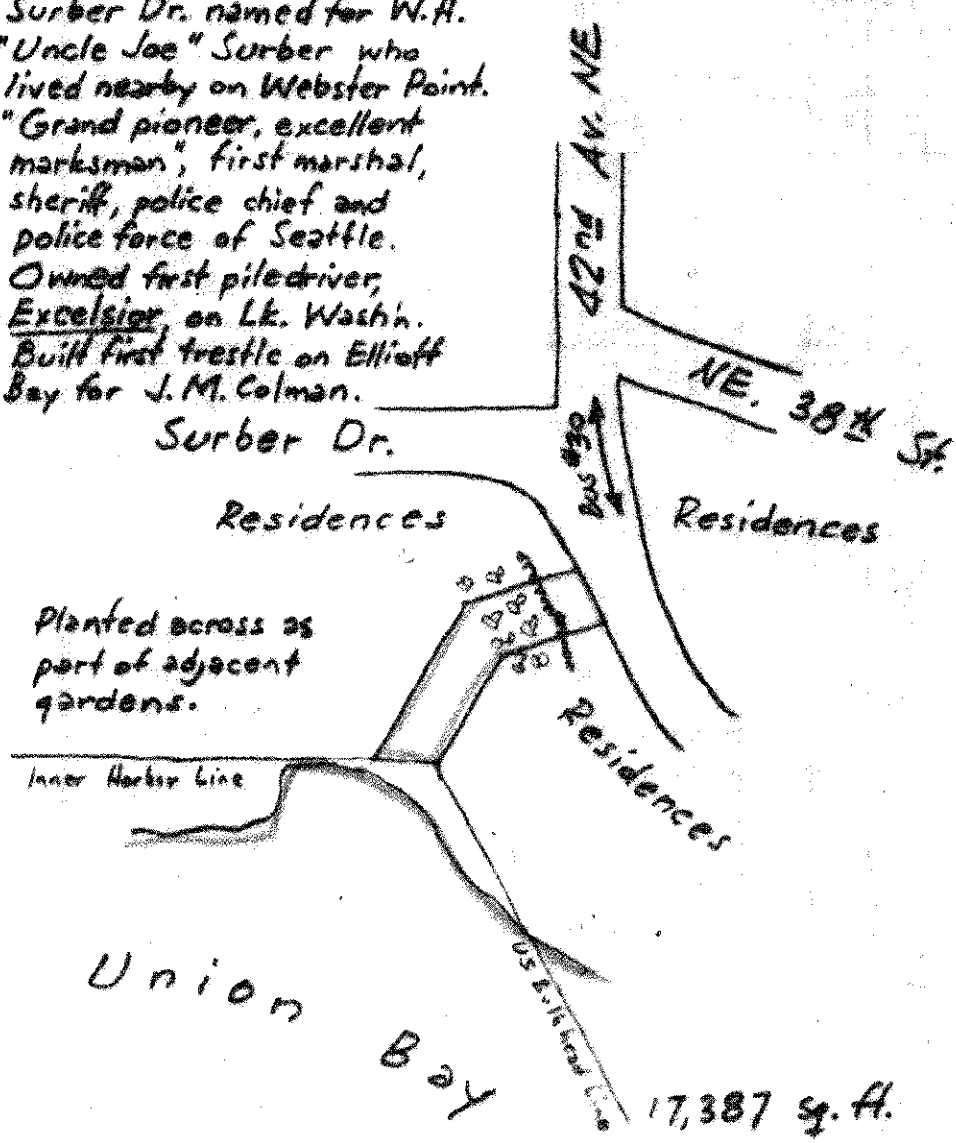 Surber Dr. named for W.H.
"Uncle Joe" Surber who
lived nearby on Webster Point.
"Grand pioneer, excellent
marksman", first marshal,
sheriff, police chief and
police force of Seattle.
Owned first piledriver,
Excelsior, on Lk. Wash'n.
Built first trestle on Elliott
Bay for J.M. Colman.
42nd Av. NE
NE. 38th St.
Surber Dr.
Bus #30
Residences
Residences
Planted across as
part of adjacent
gardens.
Residences
Inner Harbor Line
Union Bay
US Bulkhead Line
17,387 sq. ft.